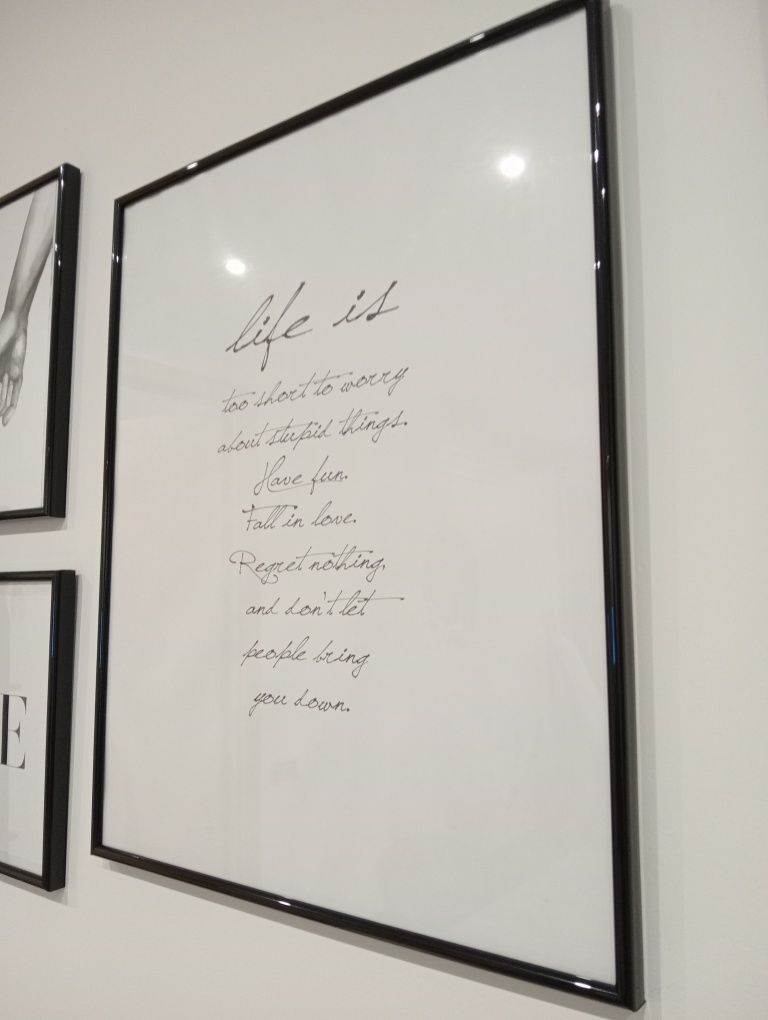 life is
too short to worry
about stupid things.
Have fun.
Fall in love.
Regret nothing,
and don't let
people bring
you down.
E